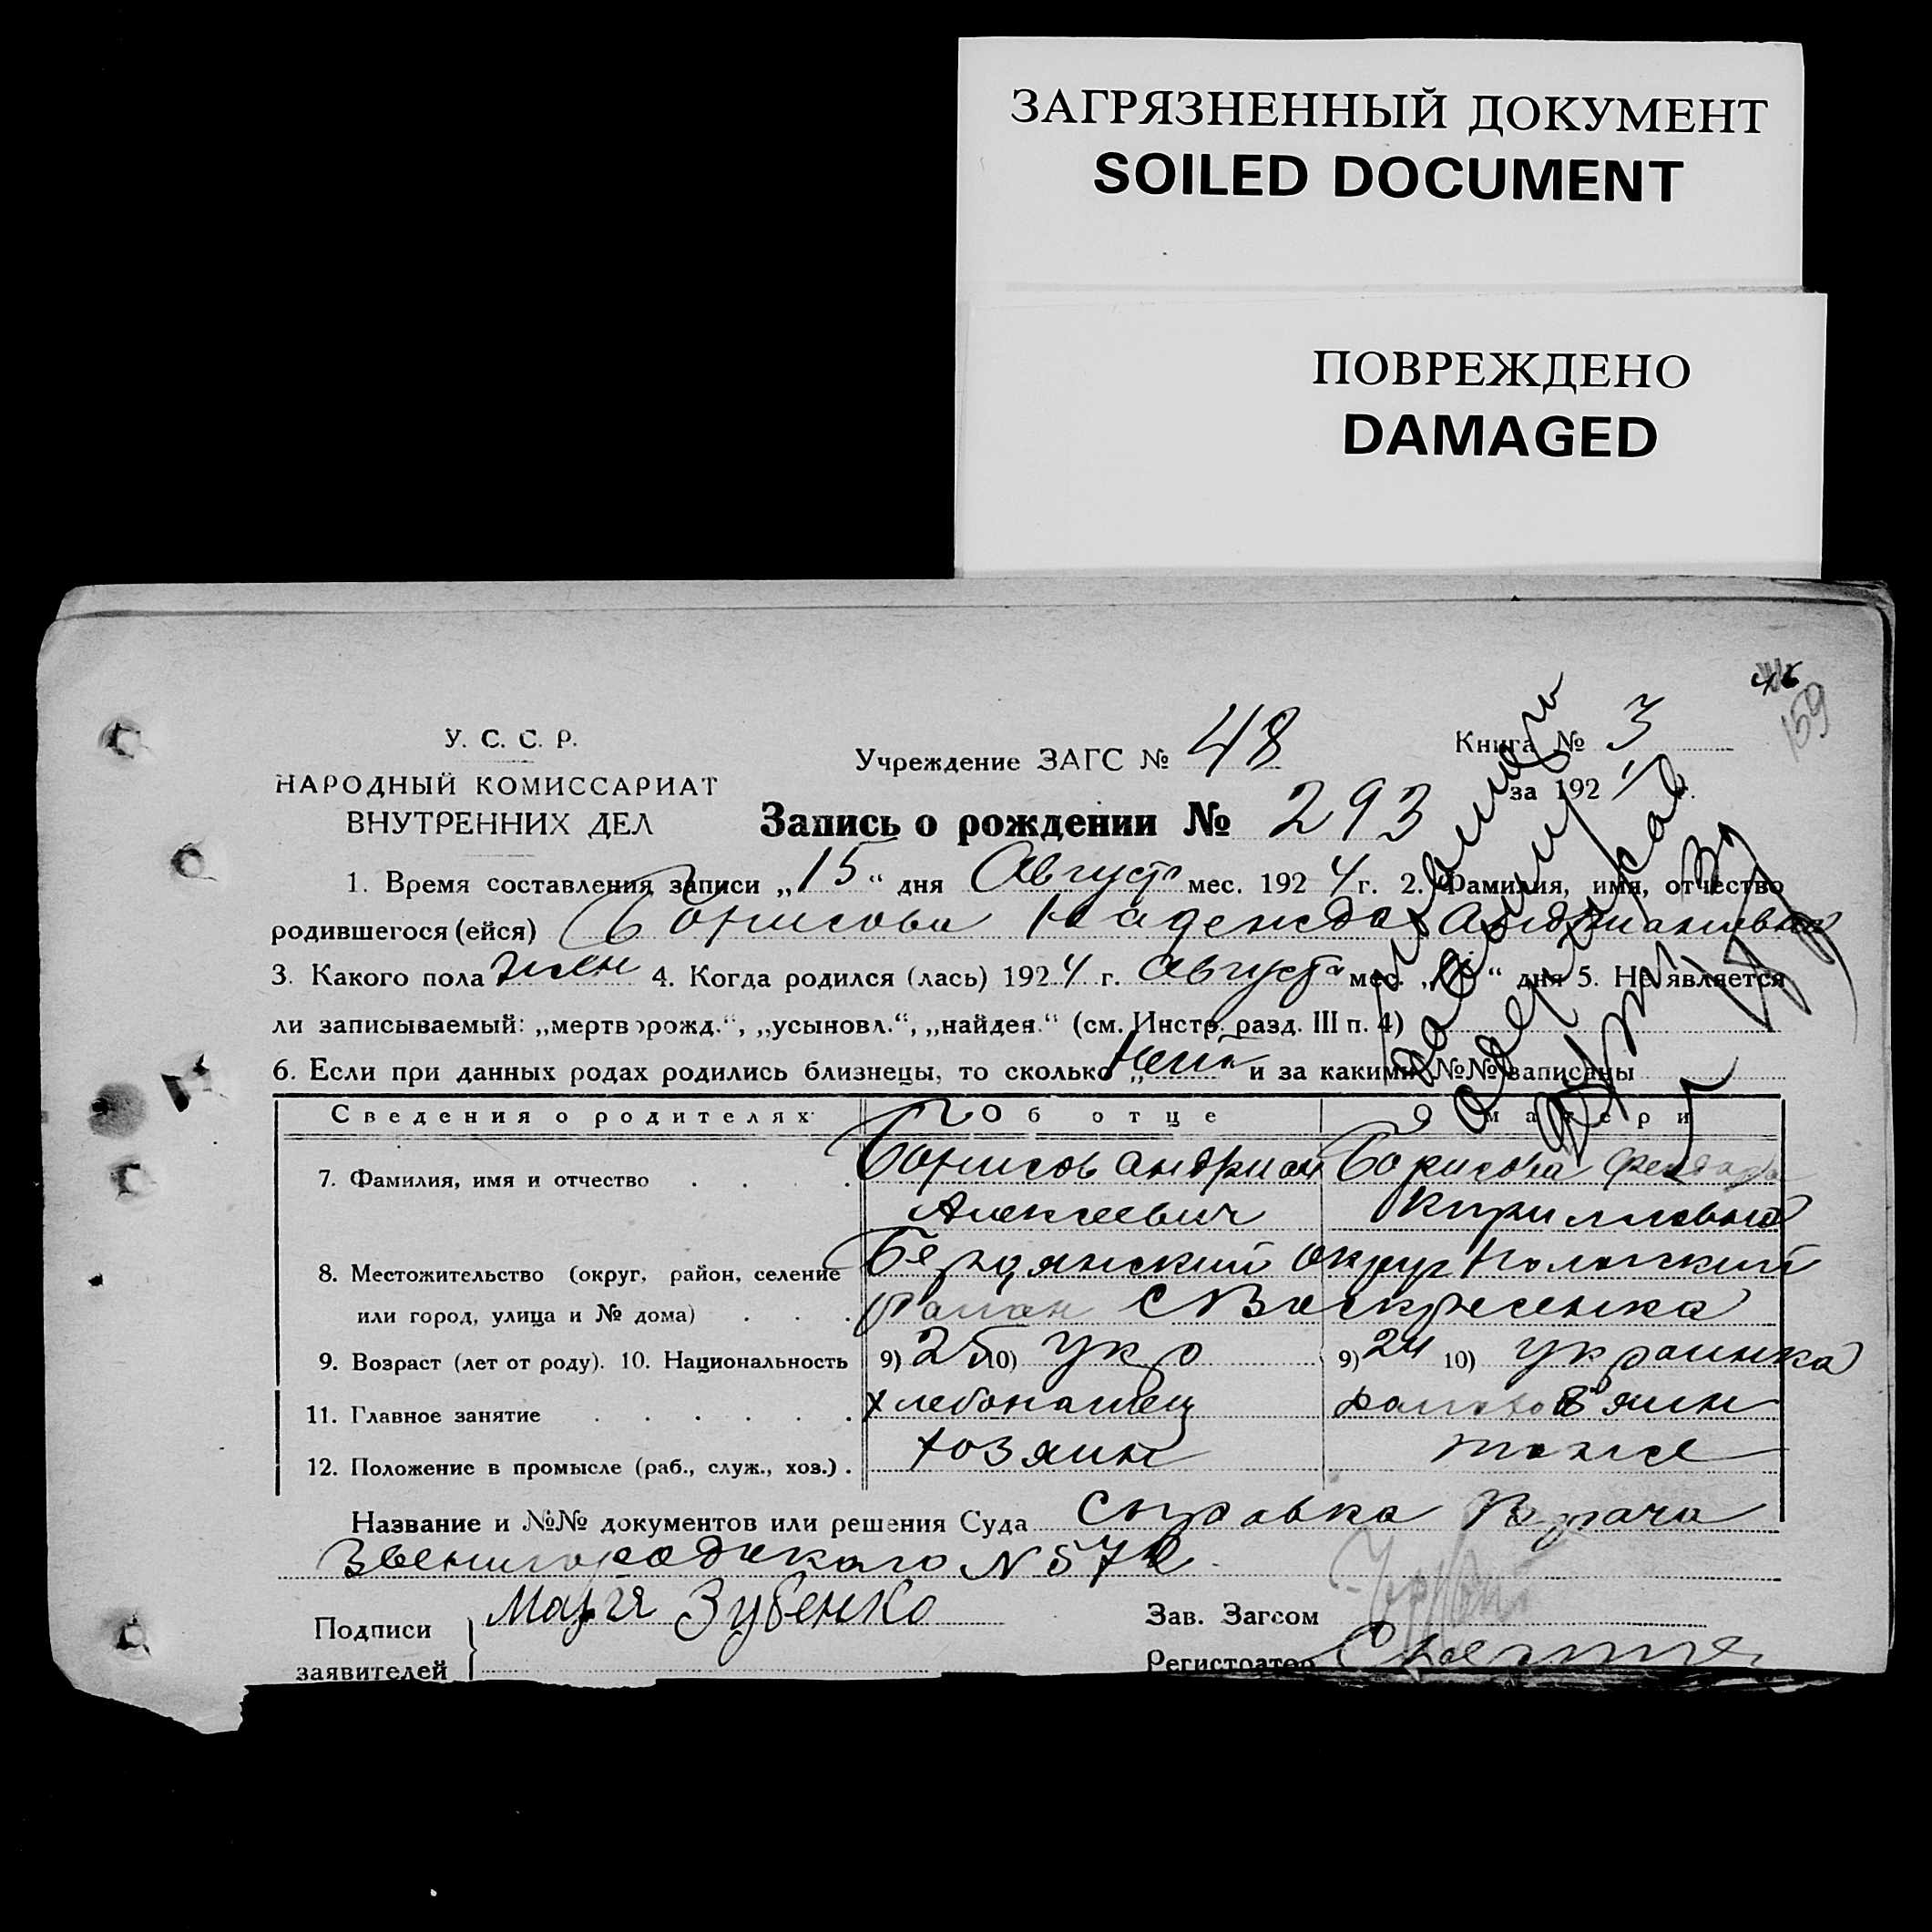 ЗАГРЯЗНЕННЫЙ ДОКУМЕНТ
SOILED DOCUMENT
ПОВРЕЖДЕНО
DAMAGED
159
У. С. С. Р.
НАРОДНЫЙ КОМИССАРИАТ
ВНУТРЕННИХ ДЕЛ
Учреждение ЗАГС № 48
Книга № 3
за 192 г.
Запись о рождении № 293
1. Время составления записи „15“ дня Август мес. 1924 г. 2. Фамилия, имя, отчество
родившегося (ейся) Борисова Надежда Андриановна
3. Какого пола жен 4. Когда родился (лась) 1924 г. Августа мес. „ “ дня 5. Не является
ли записываемый: „мертворожд.“, „усыновл.“, „найден.“ (см. Инстр. разд. III п. 4)
6. Если при данных родах родились близнецы, то сколько „ и за какими №№ записаны
Сведения о родителях Об отце О матери
7. Фамилия, имя и отчество Борисов Андриан Борисова
Алексеевич Кирилловна
8. Местожительство (округ, район, селение Бердянский округ Пологский
или город, улица и № дома) район С Воскресенка
9. Возраст (лет от роду). 10. Национальность 9) 25 10) укр 9) 24 10) украинка
11. Главное занятие хлебопашец
12. Положение в промысле (раб., служ., хоз.) хозяин тоже
Название и №№ документов или решения Суда Справка Врача
Звенигородского N 572
Подписи
заявителей
Мария Зубенко
Зав. Загсом
Регистратор